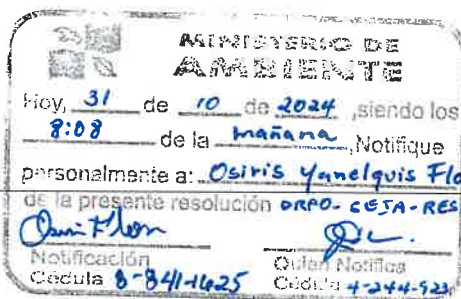 MINISTERIO DE
AMBIENTE
Hoy, 31 de 10 de 2024, siendo los
8:08 de la mañana, Notifique
personalmente a: Osiris Yanelquis Flo
de la presente resolución DRPO-SEIA-RES
Notificación Quien Notifica
Cédula 8-841-1625 Cédula 4-244-523